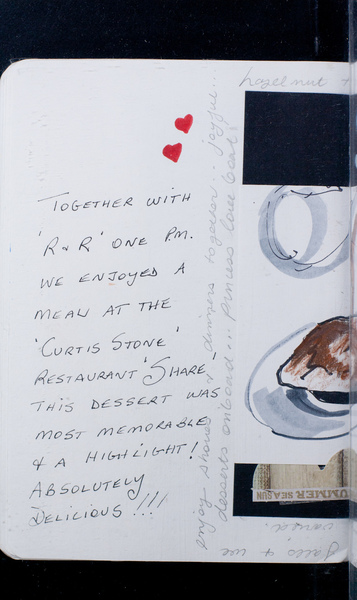 TOGETHER WITH
'R & R' ONE P.M.
WE ENJOYED A
MEAL AT THE
'CURTIS STONE'
RESTAURANT 'SHARE'
THIS DESSERT WAS
MOST MEMORABLE
& A HIGHLIGHT!
ABSOLUTELY
DELICIOUS !!!!
enjoy shows & dinners together... joyful...
desserts onboard... princess love boat!
hazelnut +
SUMMER SEA SUN